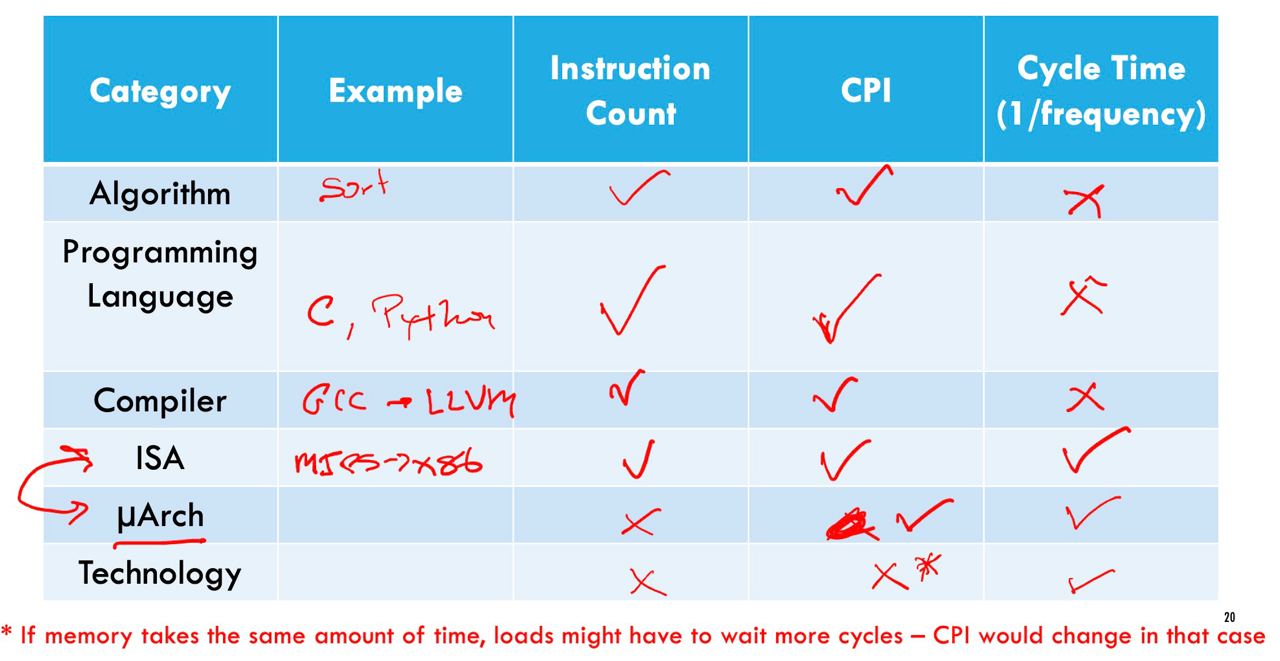 Category Example Instruction Count CPI Cycle Time (1/frequency)
Algorithm Sort ✓ ✓ ✗
Programming Language C, Python ✓ ✓ ✗
Compiler GCC → LLVM ✓ ✓ ✗
ISA MIPS->x86 ✓ ✓ ✓
μArch ✗ ✓ ✓
Technology ✗ ✗* ✓
20
* If memory takes the same amount of time, loads might have to wait more cycles – CPI would change in that case